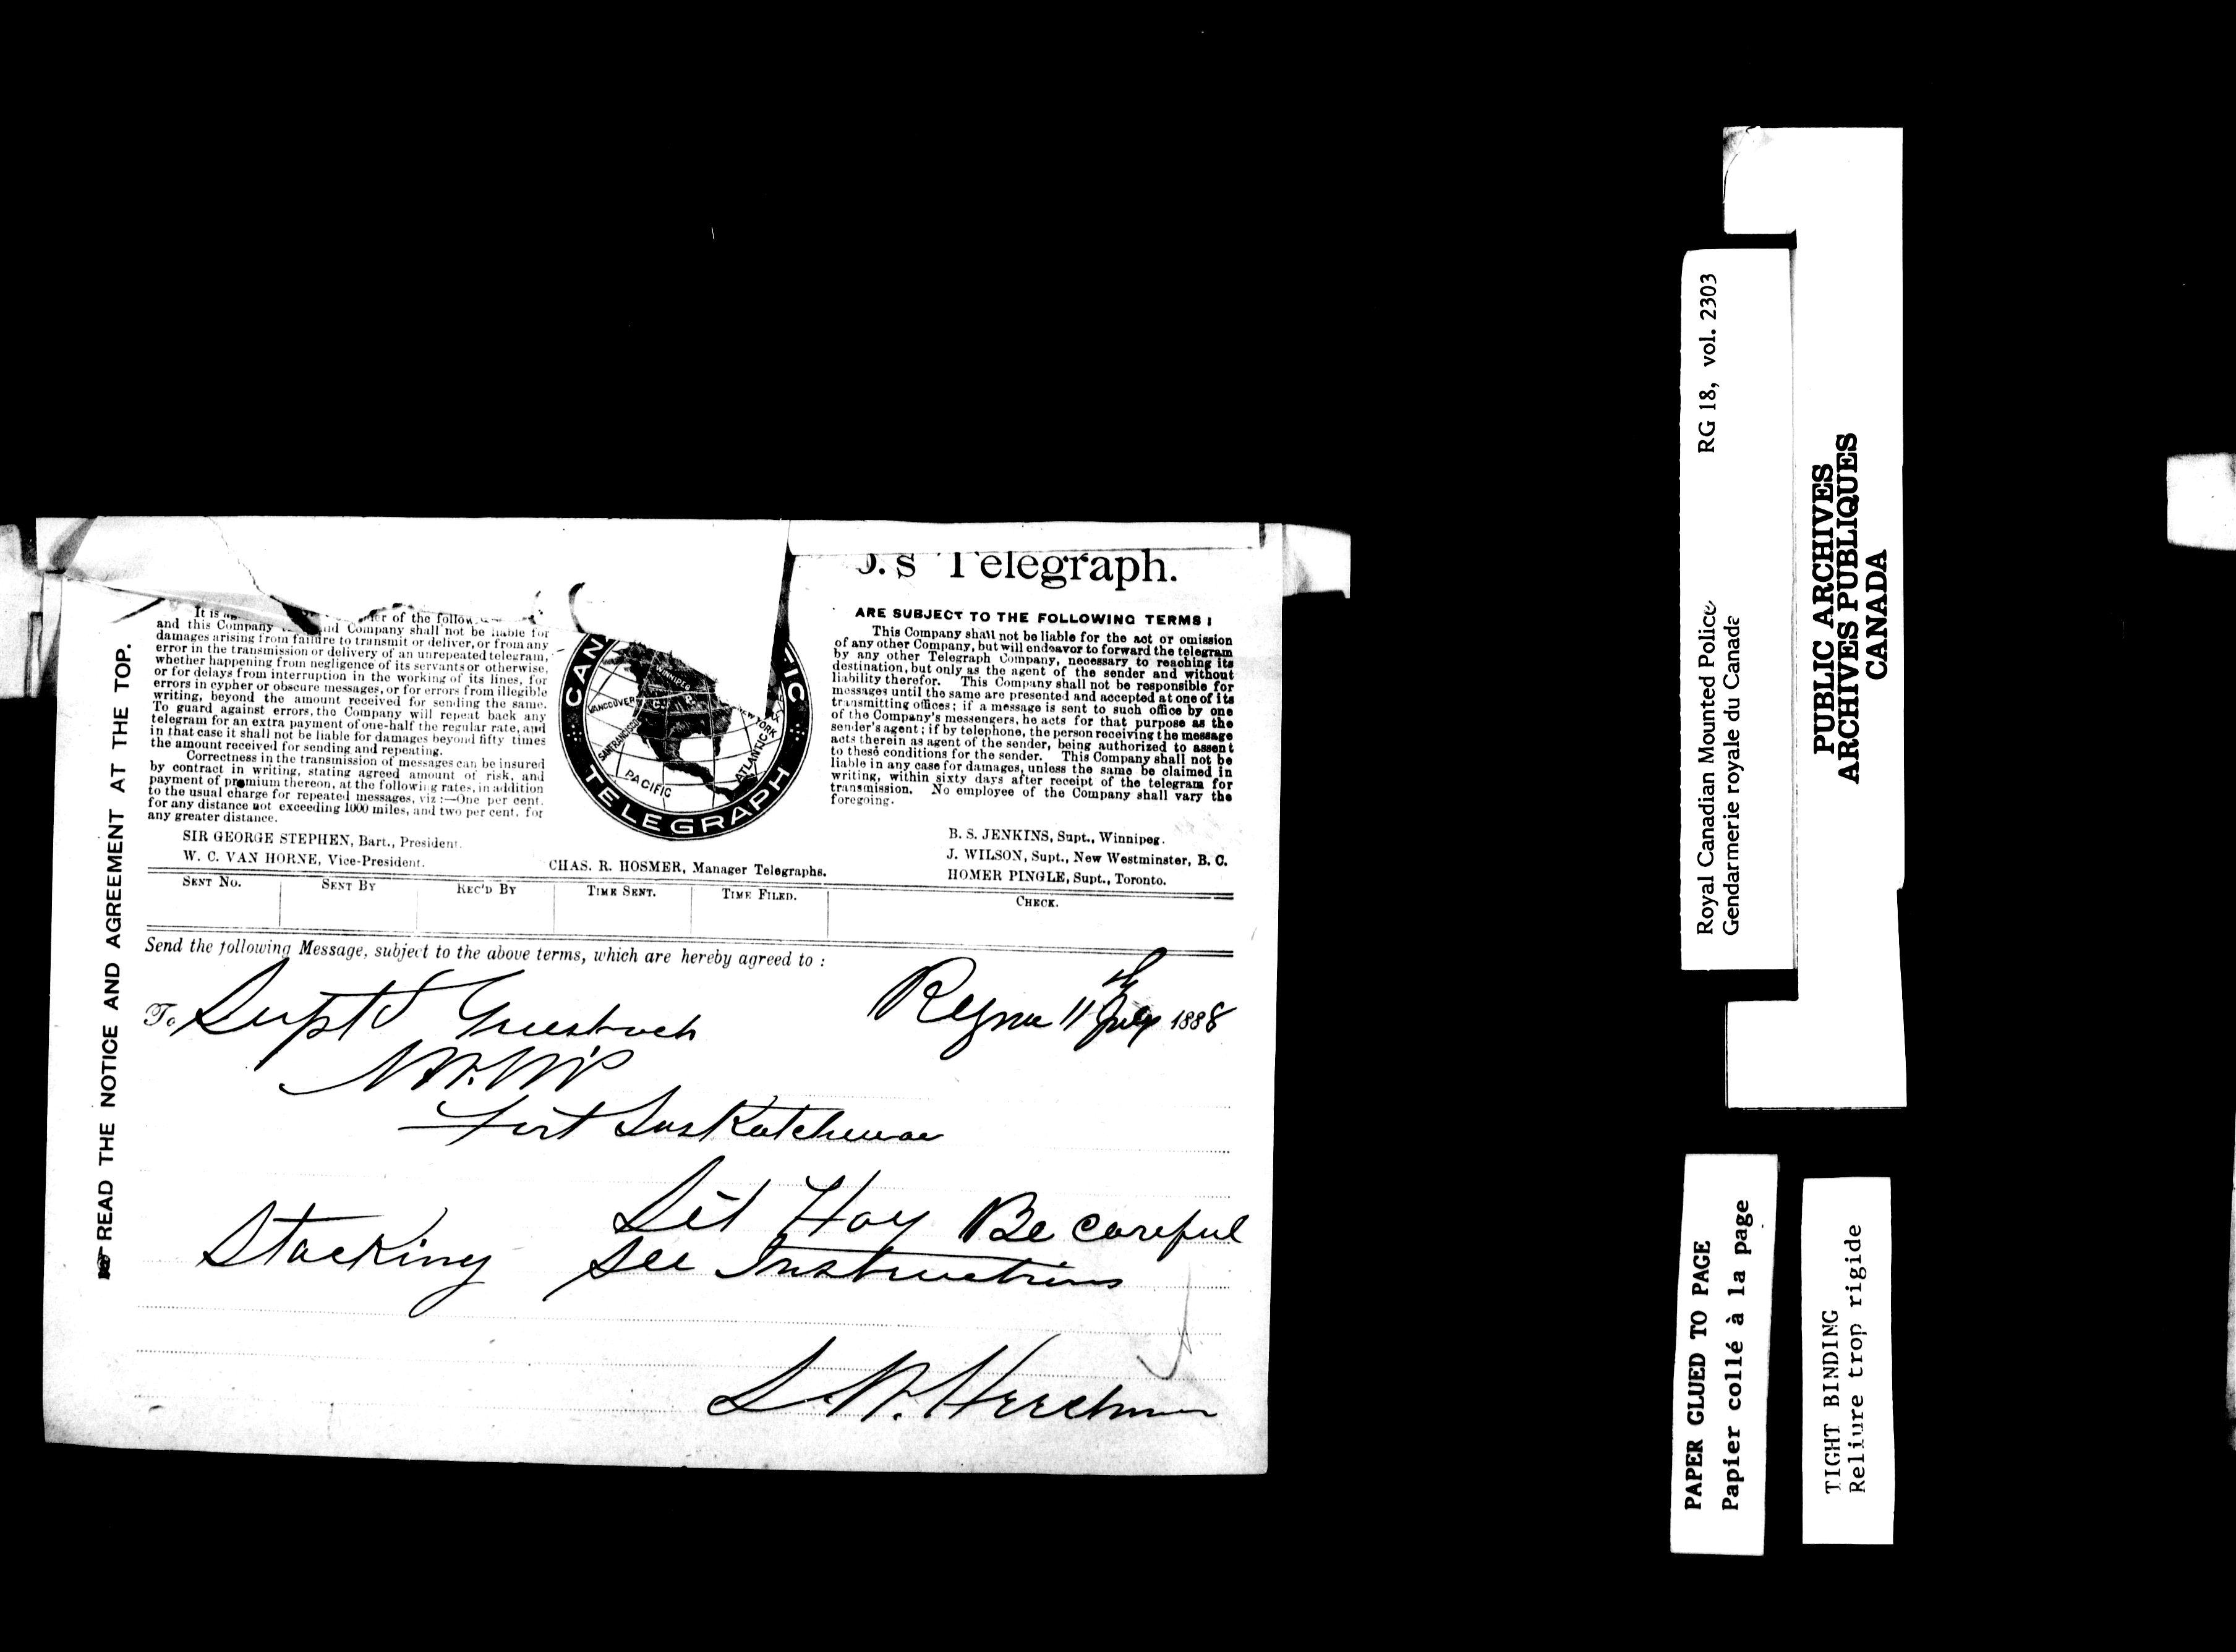 O.'s Telegraph.
READ THE NOTICE AND AGREEMENT AT THE TOP.
It is of the follow
and this Company and Company shall not be liable for
damages arising from failure to transmit or deliver, or from any
error in the transmission or delivery of an unrepeated telegram,
whether happening from negligence of its servants or otherwise,
or for delays from interruption in the working of its lines, for
errors in cypher or obscure messages, or for errors from illegible
writing, beyond the amount received for sending the same.
To guard against errors, the Company will repeat back any
telegram for an extra payment of one-half the regular rate, and
in that case it shall not be liable for damages beyond fifty times
the amount received for sending and repeating.
Correctness in the transmission of messages can be insured
by contract in writing, stating agreed amount of risk, and
payment of premium thereon, at the following rates, in addition
to the usual charge for repeated messages, viz:—One per cent.
for any distance not exceeding 1000 miles, and two per cent. for
any greater distance.
SIR GEORGE STEPHEN, Bart., President.
W. C. VAN HORNE, Vice-President.
CAN IC
TELEGRAPH
WINNIPEG
VANCOUVER
C.P.R.
SAN FRANCISCO
NEW YORK
PACIFIC
ATLANTIC
CHAS. R. HOSMER, Manager Telegraphs.
ARE SUBJECT TO THE FOLLOWING TERMS:
This Company shall not be liable for the act or omission
of any other Company, but will endeavor to forward the telegram
by any other Telegraph Company, necessary to reaching its
destination, but only as the agent of the sender and without
liability therefor. This Company shall not be responsible for
messages until the same are presented and accepted at one of its
transmitting offices; if a message is sent to such office by one
of the Company's messengers, he acts for that purpose as the
sender's agent; if by telephone, the person receiving the message
acts therein as agent of the sender, being authorized to assent
to these conditions for the sender. This Company shall not be
liable in any case for damages, unless the same be claimed in
writing, within sixty days after receipt of the telegram for
transmission. No employee of the Company shall vary the
foregoing.
B. S. JENKINS, Supt., Winnipeg.
J. WILSON, Supt., New Westminster, B. C.
HOMER PINGLE, Supt., Toronto.
SENT NO. SENT BY REC'D BY TIME SENT. TIME FILED. CHECK.
Send the following Message, subject to the above terms, which are hereby agreed to:
Regina 11 July 1888
To Suptd Griesbach
N.W.M.P
Fort Saskatchewan
Let Hay Be careful
Stacking See Instructions
L.W. Herchmer
Royal Canadian Mounted Police RG 18, vol. 2303
Gendarmerie royale du Canada
PUBLIC ARCHIVES
ARCHIVES PUBLIQUES
CANADA
PAPER GLUED TO PAGE
Papier collé à la page
TIGHT BINDING
Reliure trop rigide